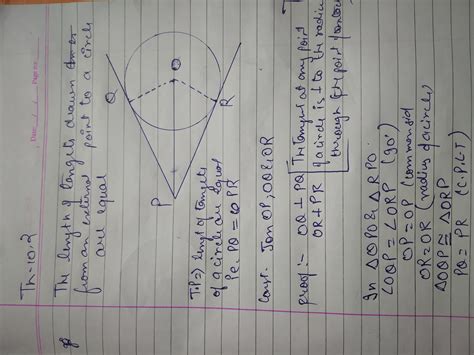 Th-10.2
The length of tangents drawn
from an external point to a circle
are equal
O
Q
R
P
T.P⇒ lengt of tangents
of a circle are equal
PQ = PR
Const. Join OP, OQ & OR
proof:- OQ ⊥ PQ [The tangent at any point
OR ⊥ PR of a circle is ⊥ to the radius
through the point
In △OPQ & △RPO
∠OQP = ∠ORP (90°)
OP = OP (common side)
OR = OR (radius of a circle)
△OQP ≅ △ORP
PQ = PR (C.P.C.T)